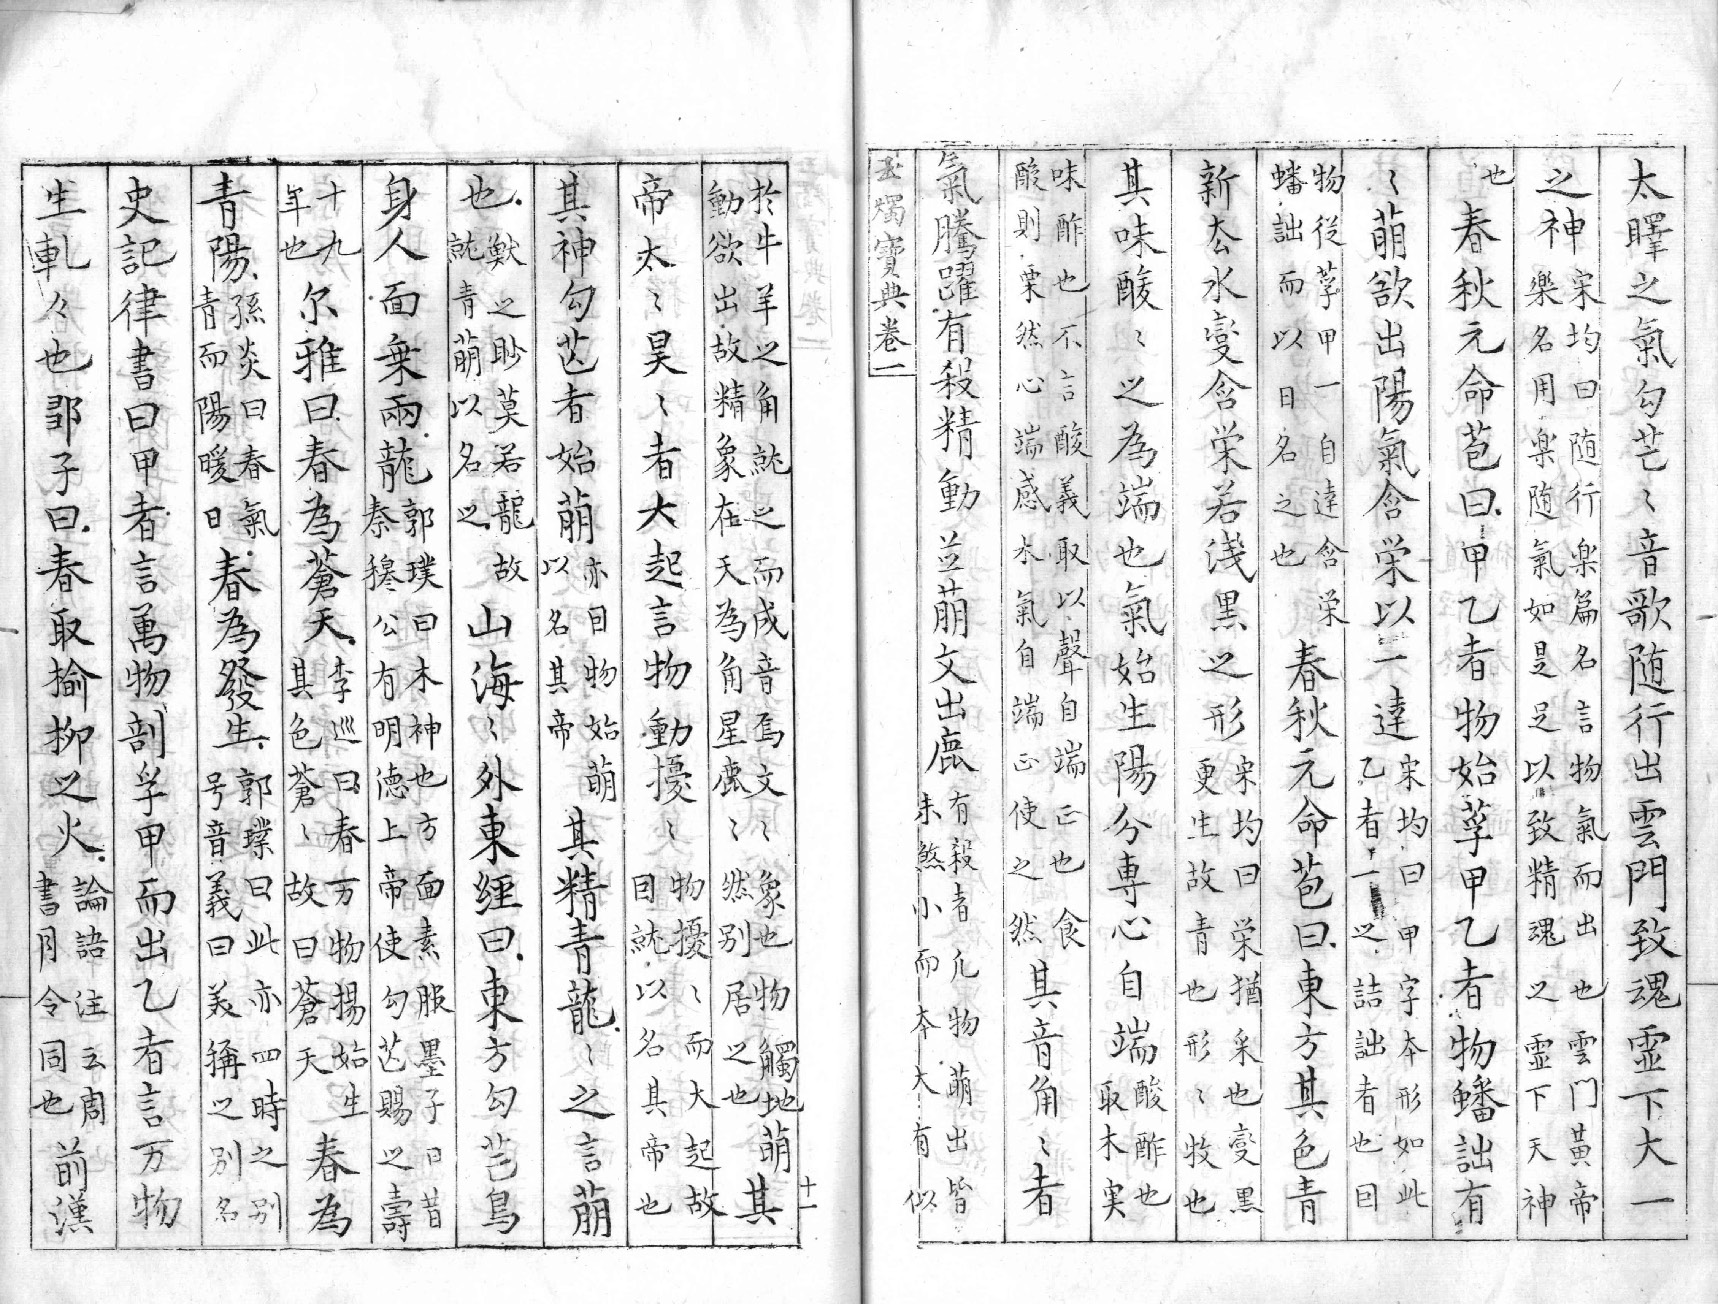 太皞之氣勾芒〻音歌随行出雲門致魂霊下大一
之神宋均曰随行楽篇名言物氣而出也雲門黃帝
楽名用楽随氣如是足以致精魂之霊下天神
也春秋元命苞曰甲乙者物始莩甲乙者物蟠詘有
〻萠欲出陽氣含栄以一達宋均曰甲字夲形如此
乙者一之詰詘者也曰
物従莩甲一自達含栄
蟠詘而以日名之也春秋元命苞曰東方其色青
新去水變含栄若浅黒之形宋均曰栄猶采也變黒
更生故青也形〻牧也
其味酸〻之為端也氣始生陽分専心自端酸酢也
取木実
味酢也不言酸義取以聲自端正也食
酸則栗然心端感木氣自端正使之然其音角〻者
氣騰躍有殺精動並萠文出鹿有殺者凡物萠出皆
未煞小而夲大有似
玉燭寶典卷一
十一
於牛羊之角就之而成音焉文〻象也物觸地萠其
動欲出故精象在天為角星鹿〻然別居之也
帝太〻昊〻者大起言物動擾〻物擾〻而大起故
因就以名其帝也
其神勾芒者始萠亦因物始萠
以名其帝其精青龍〻之言萠
也獣之眇莫若龍故
就青萠以名之山海〻外東經曰東方勾芒鳥
身人面乗兩龍郭璞曰木神也方面素服墨子曰昔
秦穆公有明德上帝使勾芒賜之壽
十九
年也尓雅曰春為蒼天李巡曰春万物揚始生
其色蒼〻故曰蒼天春為
青陽孫炎曰春氣
青而陽暖曰春為發生郭璞曰此亦四時之别
号音義曰美稱之别名
史記律書曰甲者言萬物剖孚甲而出乙者言万物
生軋々也郭子曰春取揄柳之火論語注云周
書月令同也前漢